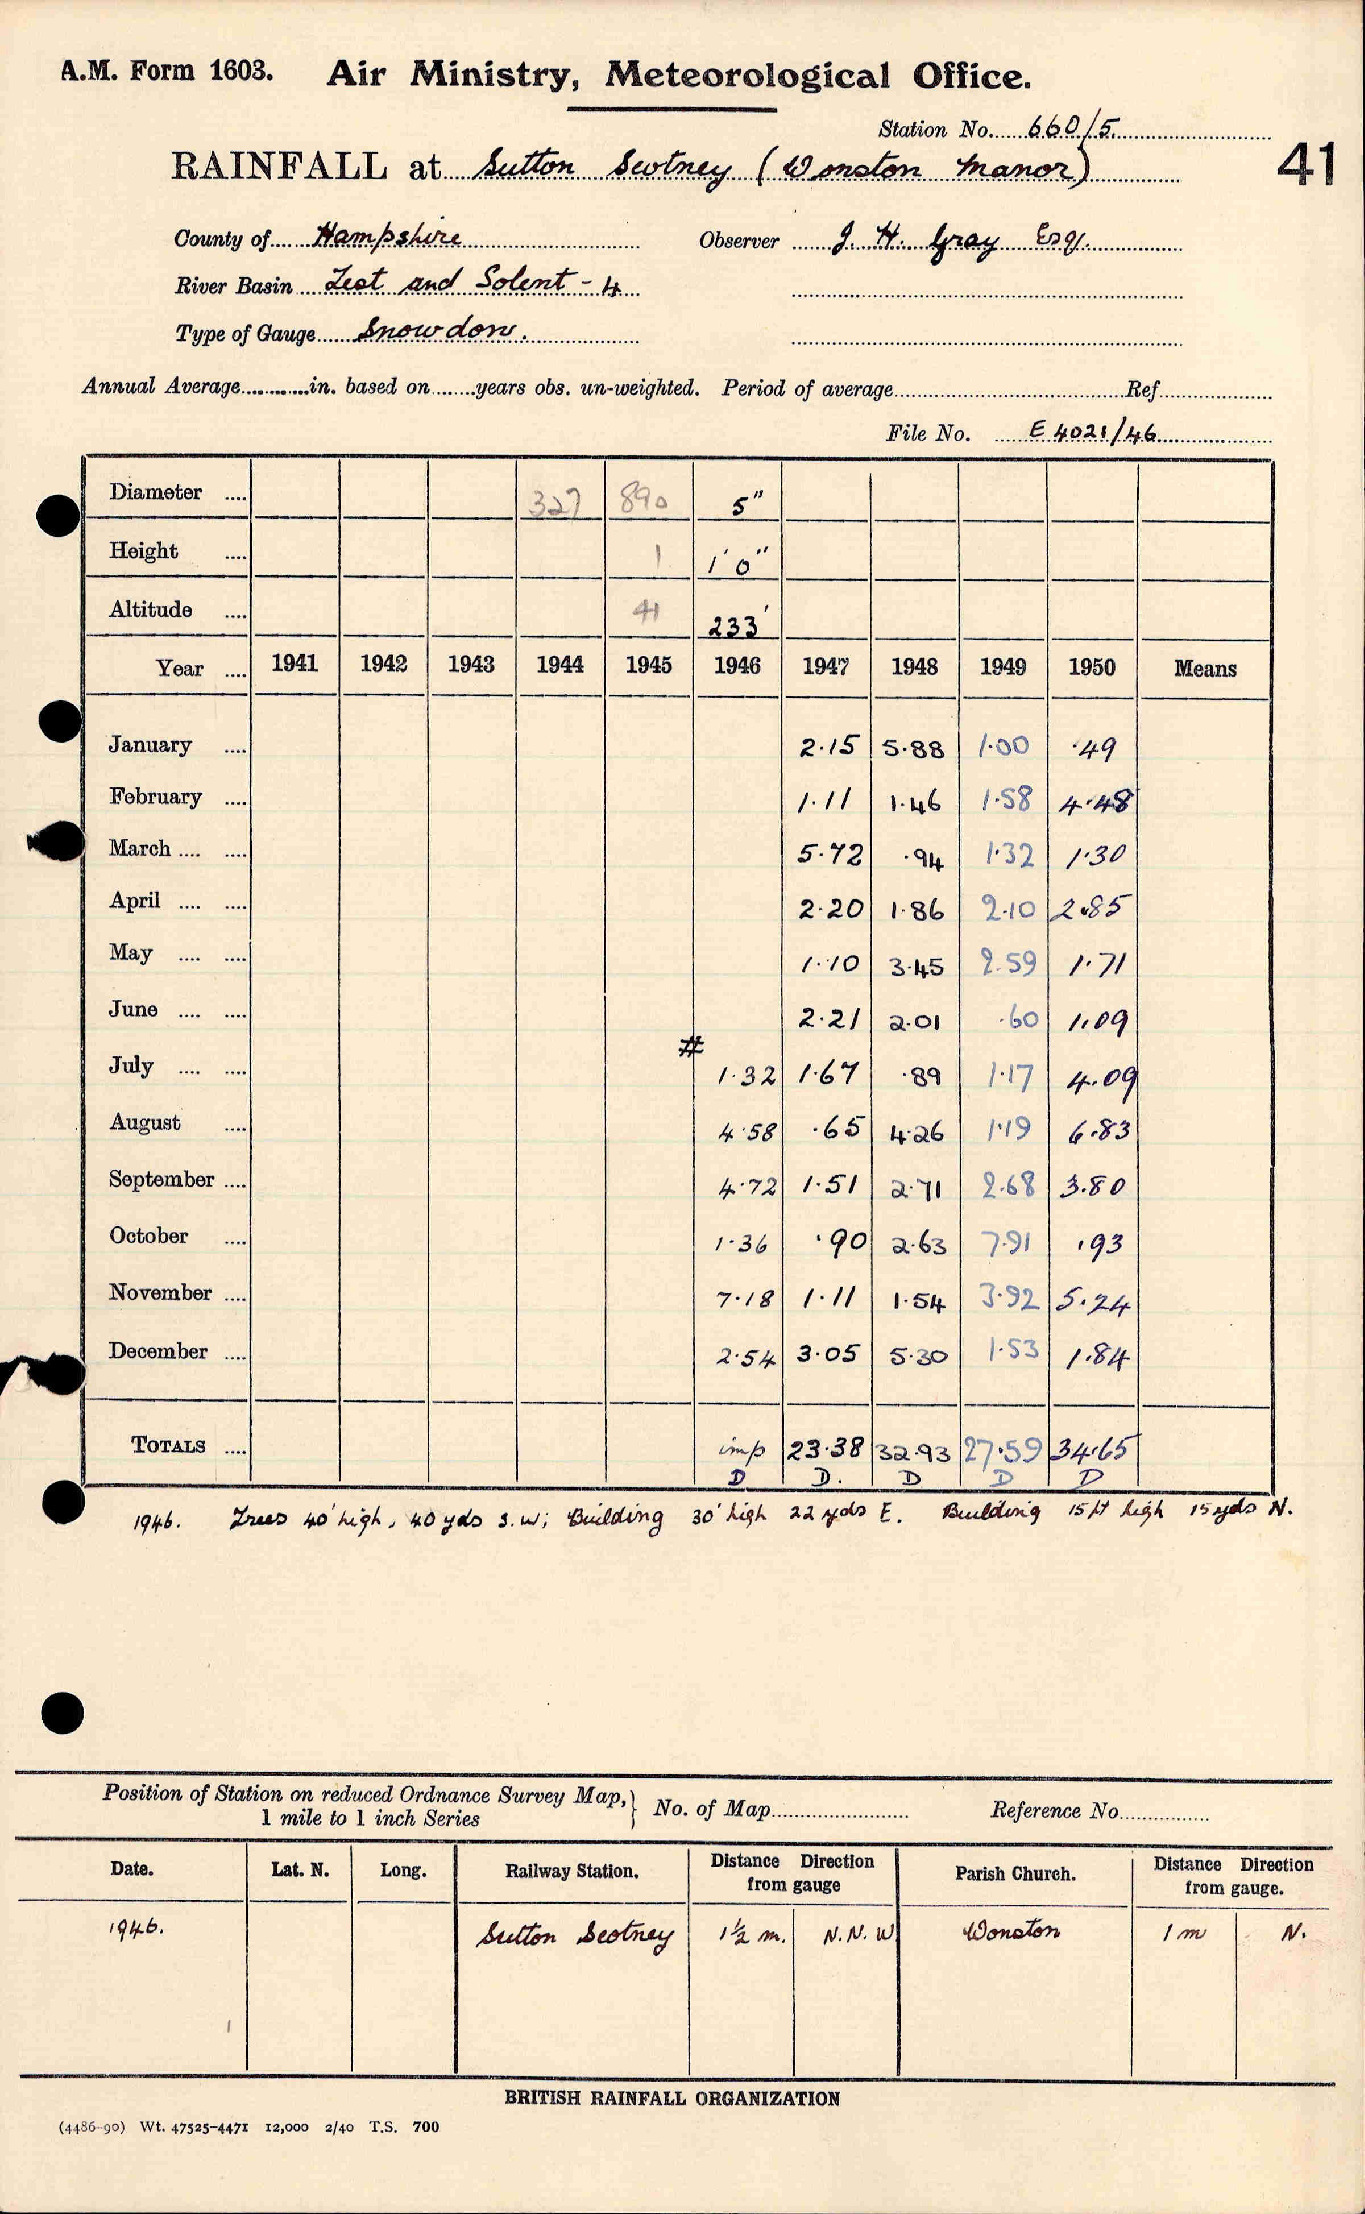 A.M. Form 1603. Air Ministry, Meteorological Office.
Station No. 660/5.
RAINFALL at Sutton Scotney (Wonston Manor) 41
County of Hampshire Observer J. H. Gray Esq.
River Basin Test and Solent - 4
Type of Gauge Snowdon.
Annual Average in. based on years obs. un-weighted. Period of average Ref
File No. E 4021/46
Diameter .... 327 890 5"
Height .... 1 1' 0"
Altitude .... 41 233'
Year .... 1941 1942 1943 1944 1945 1946 1947 1948 1949 1950 Means
January .... 2.15 5.88 1.00 .49
February .... 1.11 1.46 1.58 4.48
March .... .... 5.72 .94 1.32 1.30
April .... .... 2.20 1.86 2.10 2.85
May .... .... 1.10 3.45 2.59 1.71
June .... .... 2.21 2.01 .60 1.09
July .... .... # 1.32 1.67 .89 1.17 4.09
August .... 4.58 .65 4.26 1.19 6.83
September .... 4.72 1.51 2.71 2.68 3.80
October .... 1.36 .90 2.63 7.91 .93
November .... 7.18 1.11 1.54 3.92 5.24
December .... 2.54 3.05 5.30 1.53 1.84
TOTALS .... imp 23.38 32.93 27.59 34.65
D D. D D D
1946. Trees 40' high, 40 yds S.W; Building 30' high 22 yds E. Building 15 ft high 15 yds N.
Position of Station on reduced Ordnance Survey Map, } No. of Map Reference No
1 mile to 1 inch Series
Date. Lat. N. Long. Railway Station. Distance Direction from gauge Parish Church. Distance Direction from gauge.
1946. Sutton Scotney 1½ m. N.N.W Wonston 1 m N.
BRITISH RAINFALL ORGANIZATION
(4486-90) Wt. 47525-4471 12,000 2/40 T.S. 700